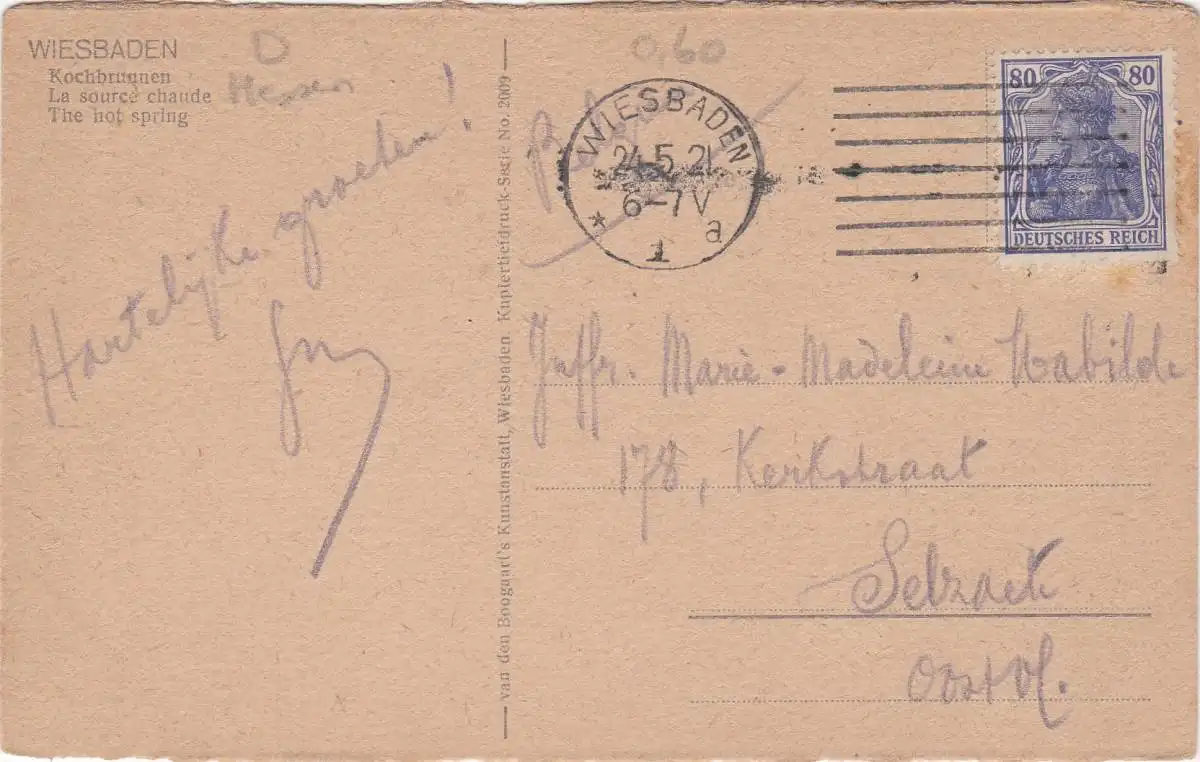 WIESBADEN
Kochbrunnen
La source chaude
The hot spring
D
Hessen
0,60
Hartelijke groeten!
van den Boogaart's Kunstanstalt, Wiesbaden - Kupfertiefdruck-Serie No. 2009
WIESBADEN
24.5.21
6-7V
* 1 a
80 80
DEUTSCHES REICH
Juffr. Marie-Madeleine
178, Kerkstraat
Selzaete
Oost Vl.